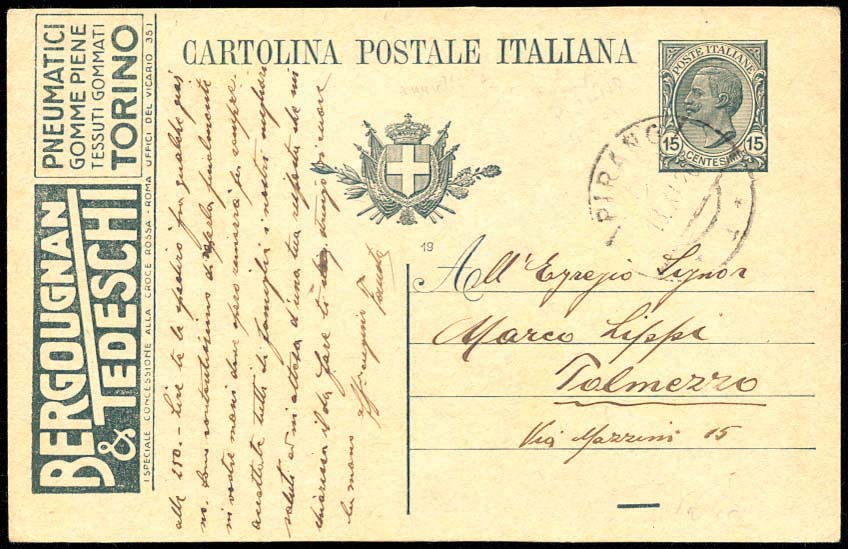 PNEUMATICI
GOMME PIENE
TESSUTI GOMMATI
TORINO
BERGOUGNAN
& TEDESCHI
I SPECIALE CONCESSIONE ALLA CROCE ROSSA - ROMA UFFICI DEL VICARIO 351
CARTOLINA POSTALE ITALIANA
POSTE ITALIANE
15 15
CENTESIMI
PIRANO
19
All' Egregio Signor
Marco Lippi
Tolmezzo
Via Mazzini 15
alle 250.- Lire te le spedirò fra qualche gior
no. Sono contentissimo di saperla finalmente
in vostre mani dove spero rimarrà per sempre.
accettate tutti di famiglia i nostri migliori
saluti ed in attesa d'una tua risposta che mi
chiarisca il da fare ti stringo di nuovo
la mano